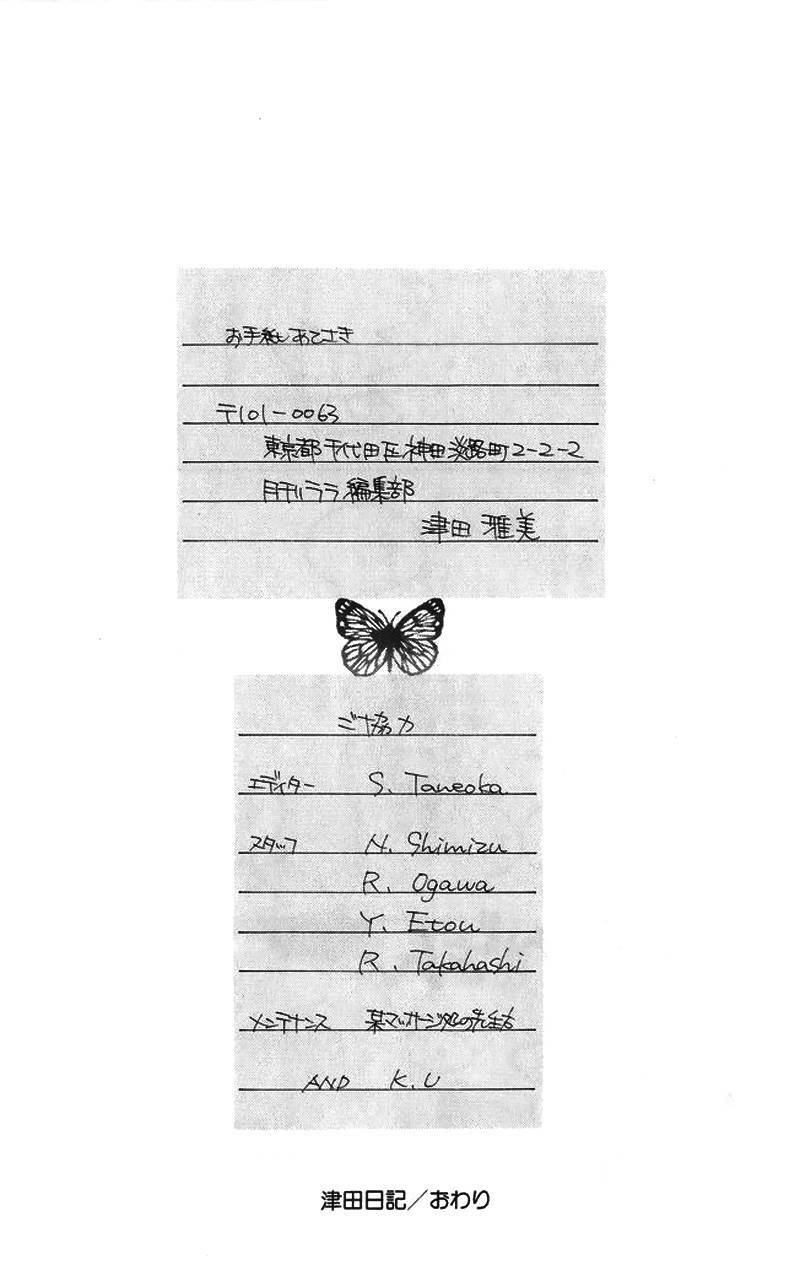 お手紙あてさき
〒101-0063
東京都千代田区神田淡路町2-2-2
月刊ララ編集部
津田 雅美
ご協力
エディター S. Taneoka
スタッフ N. Shimizu
R. Ogawa
Y. Etou
R. Takahashi
メンテナンス 某マッサージ処の先生方
AND K.U
津田日記/おわり